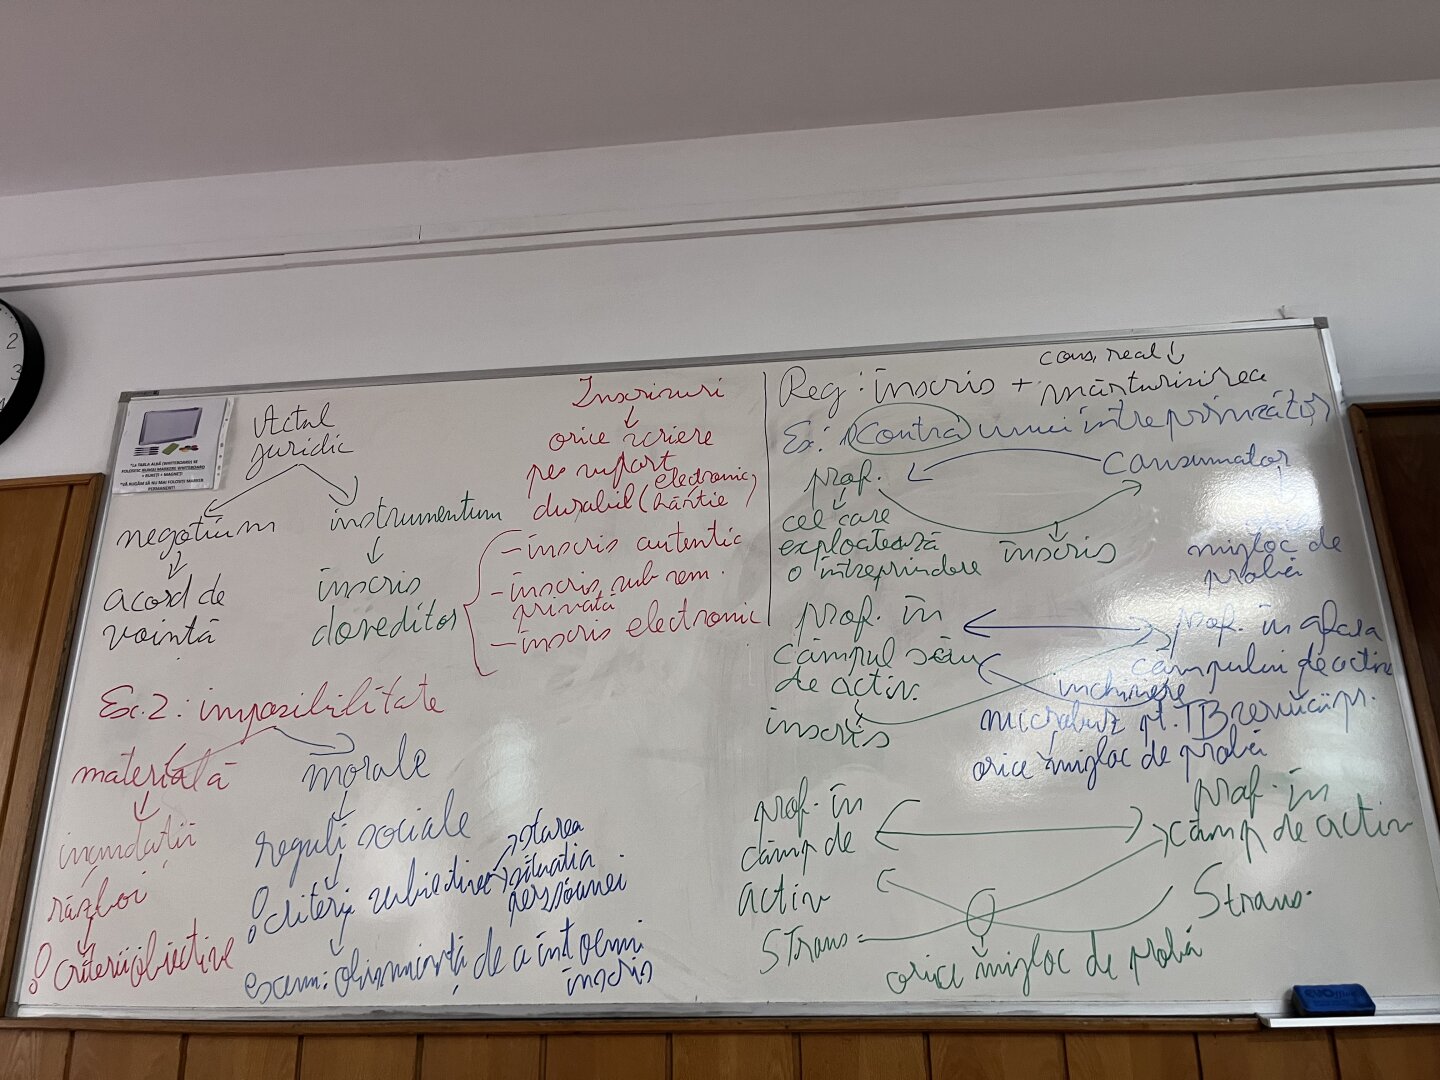 2
3
4
*LA TABLA ALBĂ (WHITEBOARD) SE
FOLOSESC NUMAI MARKERE WHITEBOARD
+ BUREȚI + MAGNEȚI
*VĂ RUGĂM SĂ NU MAI FOLOSIȚI MARKER
PERMANENT!
Actul
juridic
negotium
acord de
voință
instrumentum
înscris
doveditor
Înscrisuri
orice scriere
pe suport
durabil (hârtie
electronic)
- înscris autentic
- înscris sub sem.
privată
- înscris electronic
Ex.2: imposibilitate
materială
inundații
război
criterii obiective
morale
reguli sociale
criterii subiective
starea
situația
persoanei
exem: obișnuință de a întocmi
înscris
cons. real
Reg: înscris + mărturisirea
Ex: 1 Contra unui întreprinzător
prof.
consumator
cel care
exploatează
o întreprindere
înscris
mijloc de
probă
prof. în
câmpul său
de activ.
înscris
prof. în afara
câmpului de activ
închiriere
microbuz pt. TB
orice mijloc de probă
prof. în
câmp de
activ
S trans
prof. în
câmp de activ
S trans.
orice mijloc de probă